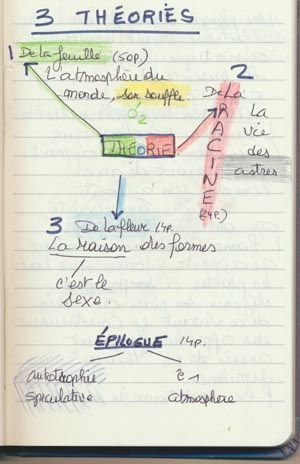 3 THÉORIES
1 De la feuille (50p.)
L'atmosphère du
monde, son souffle.
O2
THÉORIE
2
De LA
RACINE
(24p.)
La
vie
des
astres
3 De la fleur 14p.
La Raison des formes
c'est le
sexe.
ÉPILOGUE 14p.
autotrophie
spéculative
atmosphère